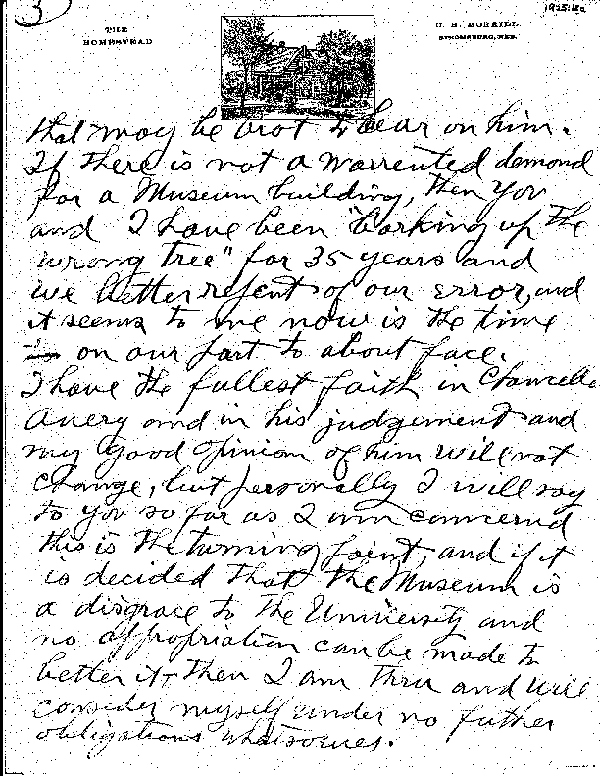 3
1925:8c
THE
HOMESTEAD
C. H. MORRILL.
STROMSBURG, NEB.
that may be brot to bear on him.
If there is not a warrented demond
for a Museum building, then you
and I have been "barking up the
wrong tree" for 35 years and
we better repent of our error, and
it seems to me now is the time
on our part to about face.
I have the fullest faith in Chancello
Avery and in his judgement and
my good opinion of him will not
change, but personally I will say
to you so far as I am concerned
this is the turning point, and if it
is decided that the Museum is
a disgrace to the University and
no appropriation can be made to
better it then I am thru and will
consider myself under no futher
obligations whatsoever.